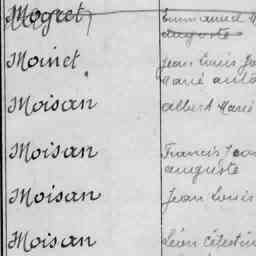 Mogret Emmanuel
auguste
Moinet Jean Louis
Marie
Moisan albert Marie
Moisan Francis Jean
auguste
Moisan Jean Louis
Moisan Léon Célestin